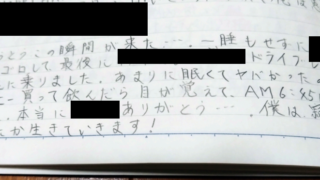 とうとうこの瞬間が来た…。一睡もせずに
ゴロして最後に ドライブし
に乗りました。あまりに眠くてヤバかったの
に買って飲んだら目が覚えて、AM6:45
。本当に ありがとう…。僕は
か生きていきます!